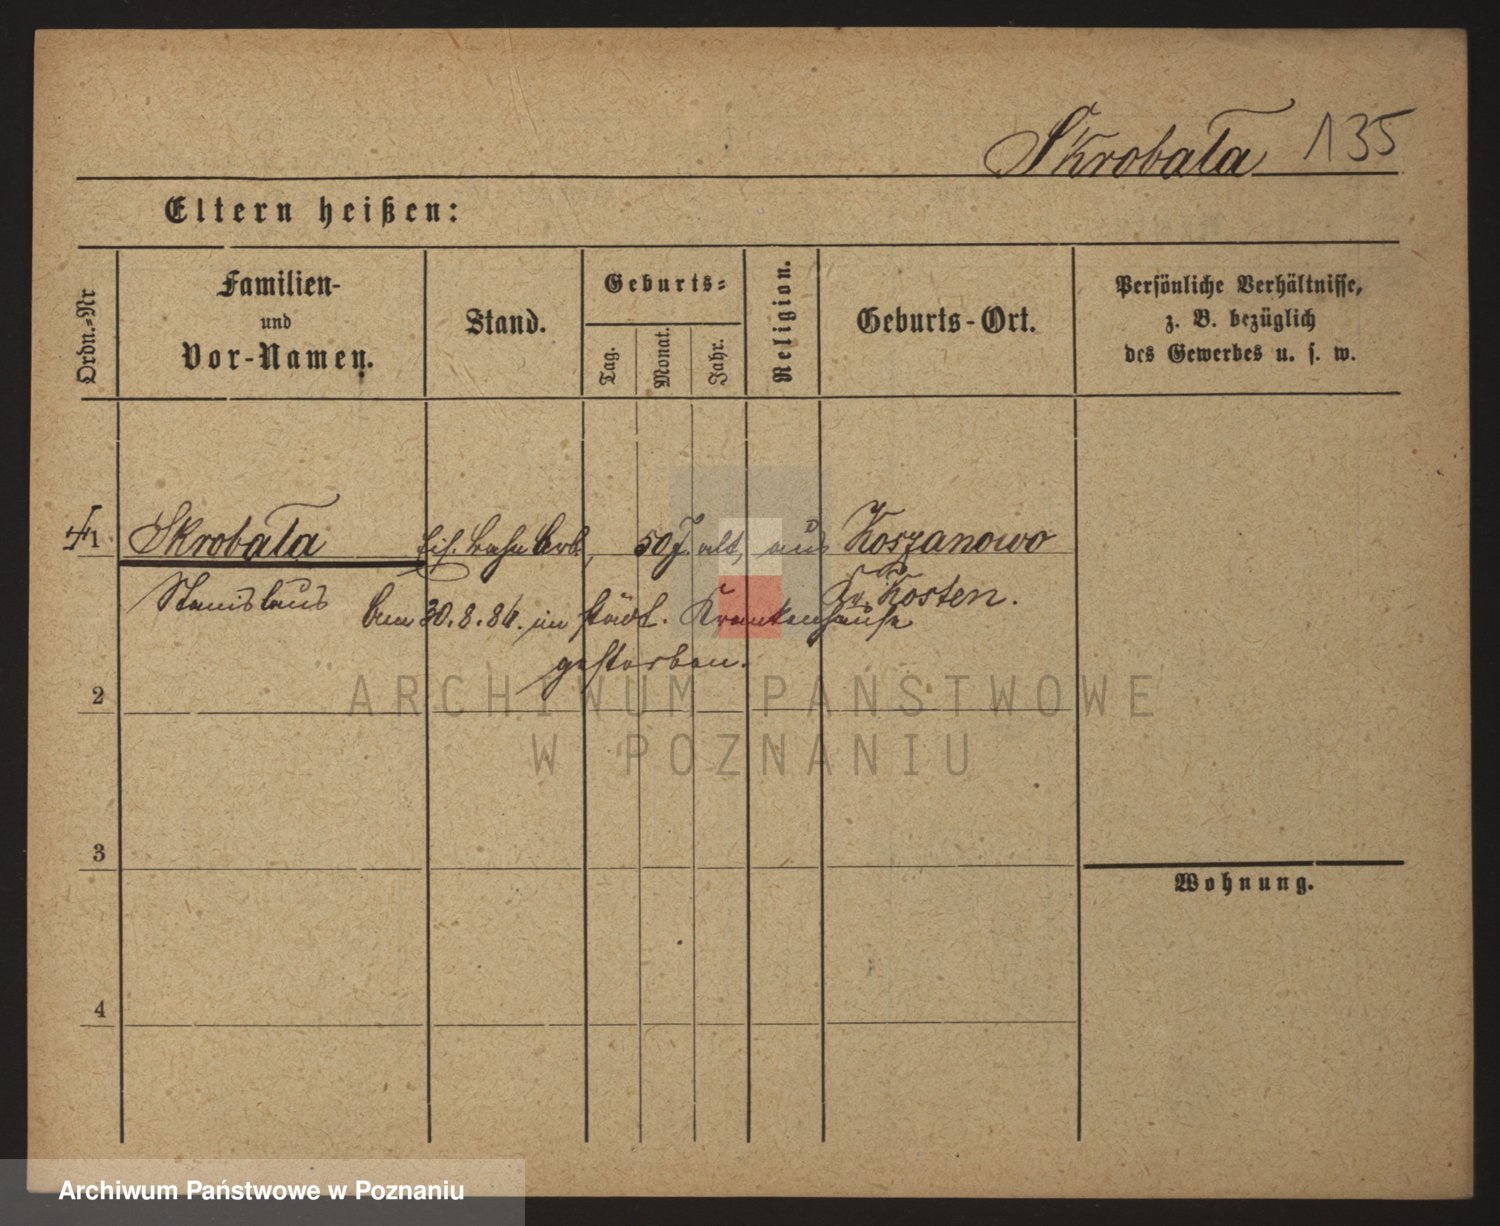 Skrobała 135
Eltern heißen:
Ordn.=Nr
Familien-
und
Vor-Namen.
Stand.
Geburts=
Tag.
Monat.
Jahr.
Religion.
Geburts-Ort.
Persönliche Verhältnisse,
z. B. bezüglich
des Gewerbes u. s. w.
1 Skrobała Eis. Bahn Arb., 50 J. alt, aus Koszanowo
Stanislaus Kr. Kosten.
Am 30.8.86. im städt. Krankenhause
gestorben.
ARCHIWUM PAŃSTWOWE
W POZNANIU
2
3
Wohnung.
4
Archiwum Państwowe w Poznaniu